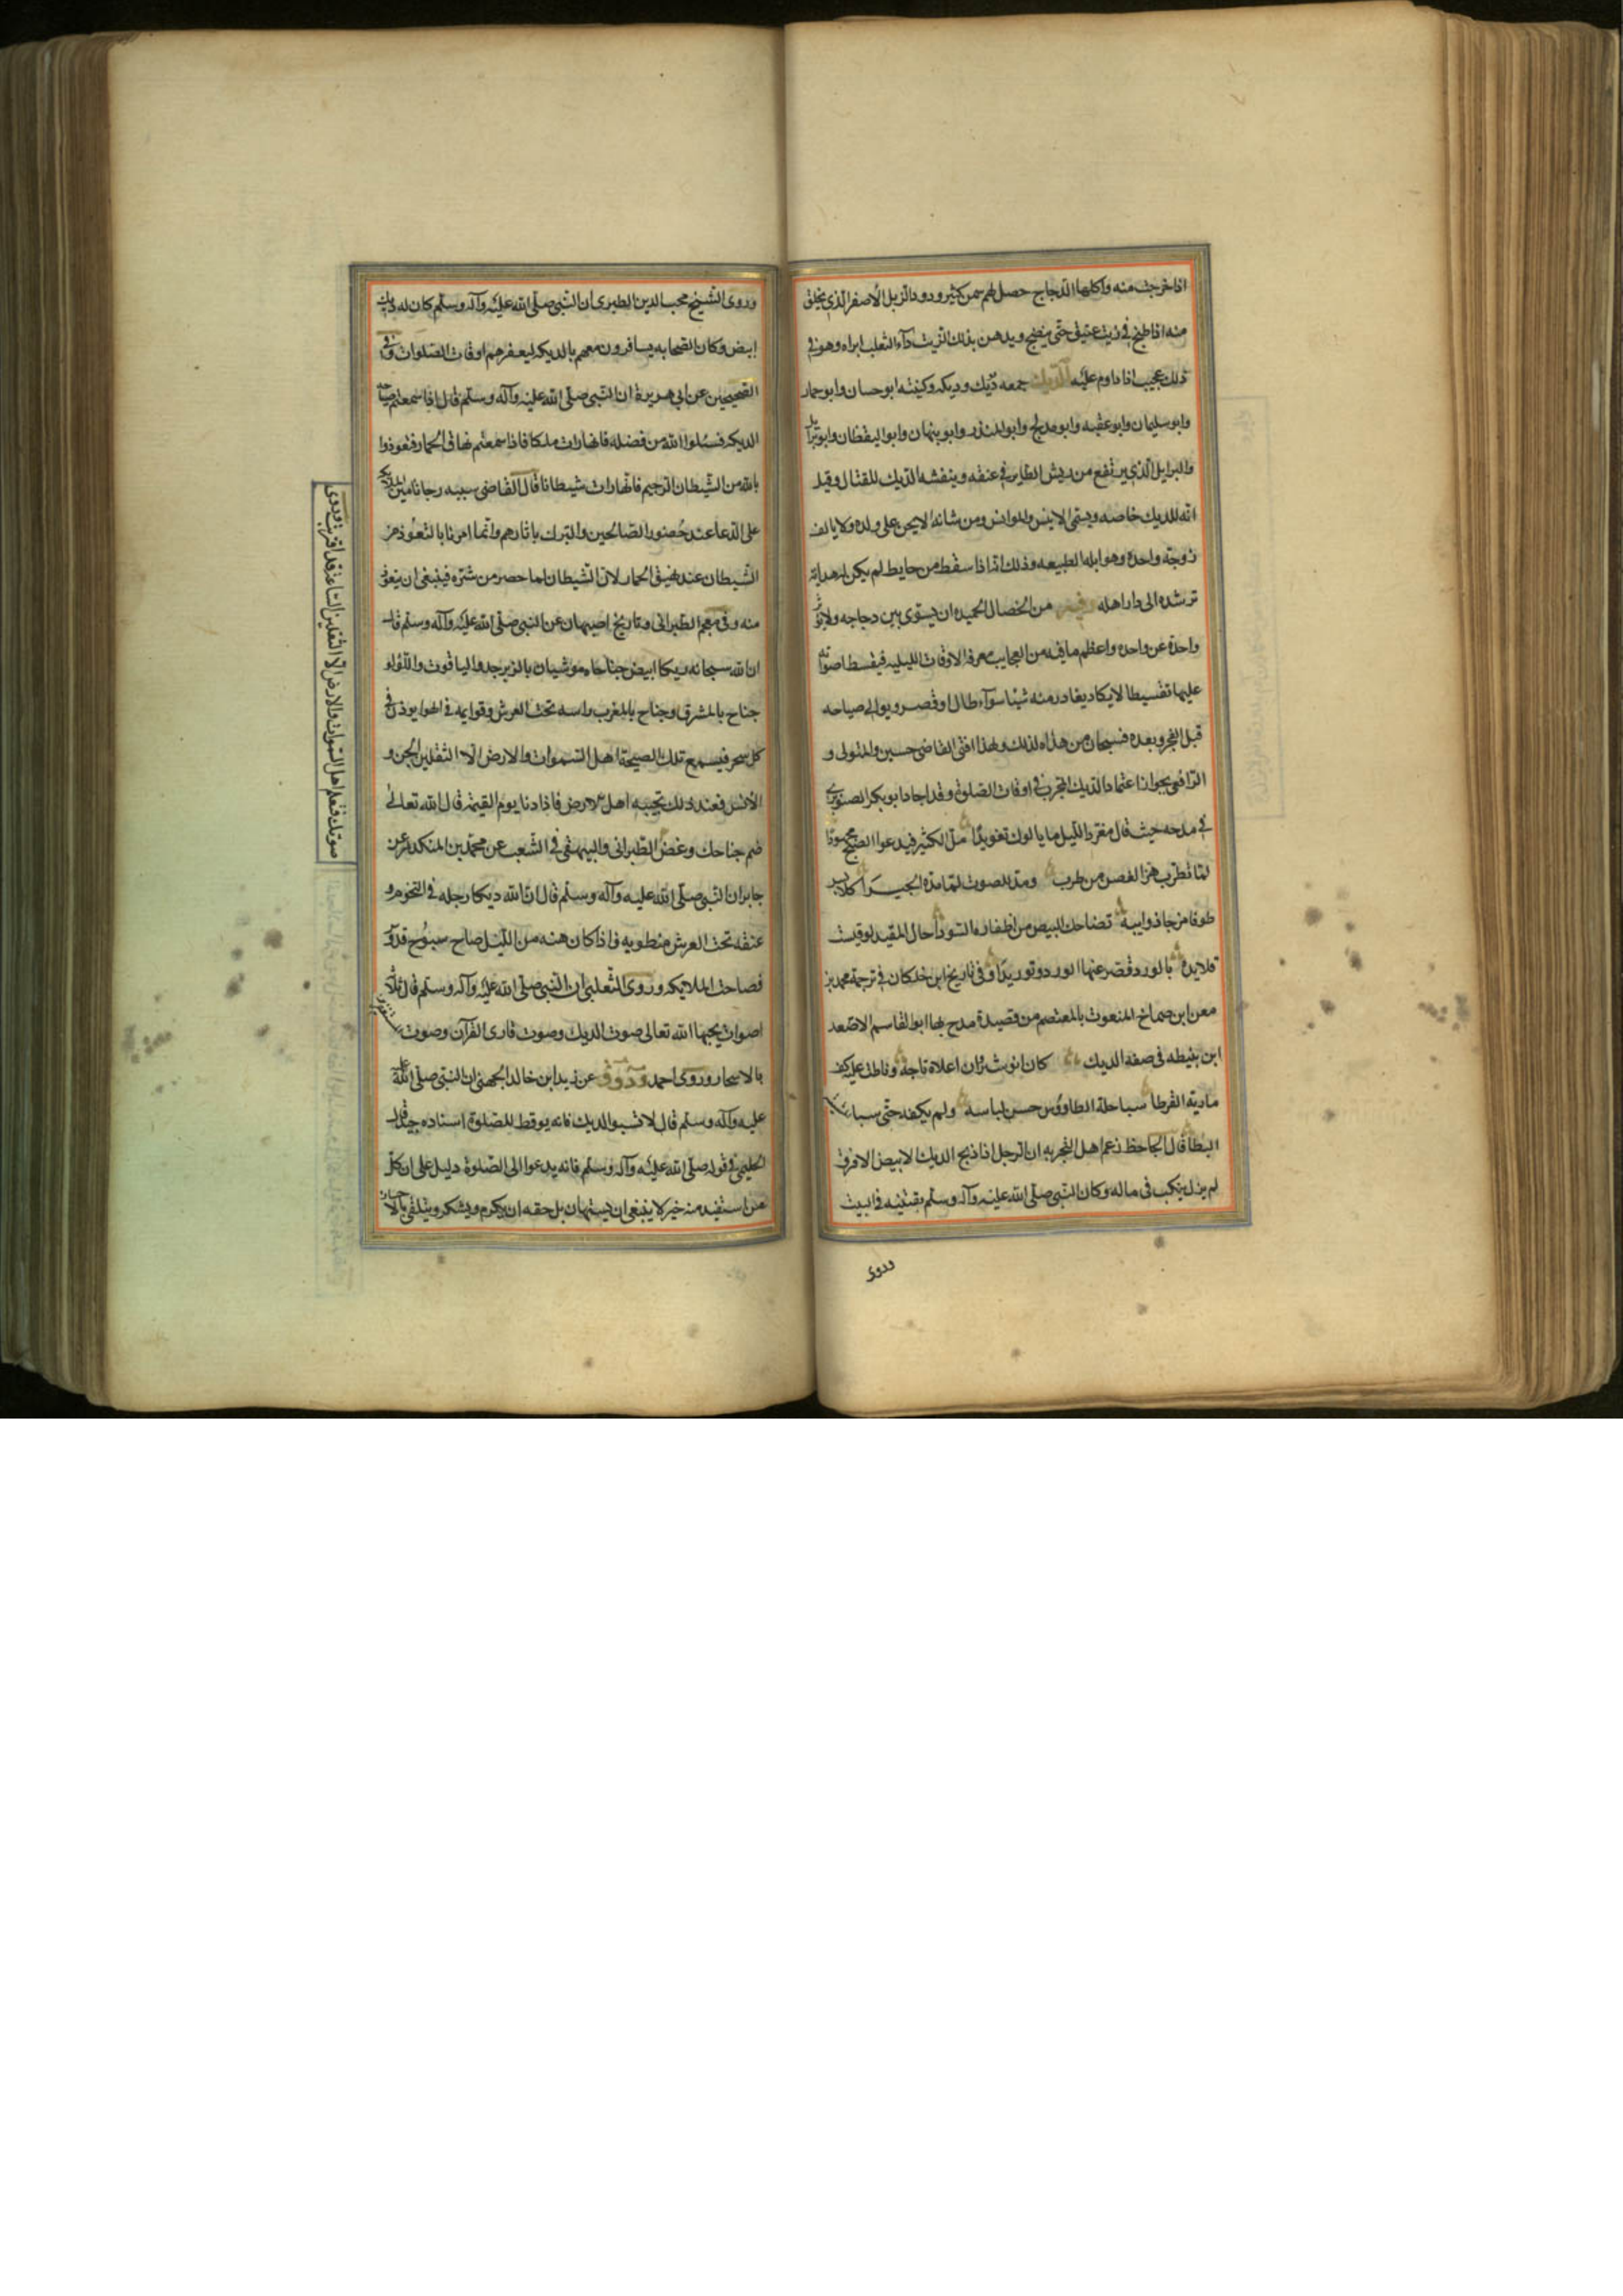 اذا خرجت منه واكلها الدجاج حصل لهم سمن كثير ودود الزبل الاصفر الذي يخلق
منه اذا طبخ في زيت عتيق حتى ينضج ويدهن بذلك الزيت دآء الثعلب ابراه وهو في
ذلك عجيب اذا داوم عليه الديك جمعه ديك وديكه وكنيته ابو حسان وابو حماد
وابو سليمان وابو عقبه وابو مدلج وابو المنذر وابو بنهان وابو اليقظان وابو برايل
والبرايل الذي يرتفع من ريش الطاير في عنقه وينفشه الديك للقتال وقيل
انه للديك خاصه ويسمى الانيس والموانس ومن شانه الا يحن على ولده ولا يالف
زوجة واحدة وهو ابله الطبيعه وذلك انه اذا سقط من حايط لم يكن له هداية
ترشده الى دار اهله وفيه من الخصال الحميده ان يسوى بين دجاجه ولا يوثر
واحدة عن واحده واعظم ما فيه من العجايب معرفة الاوقات الليليه فيقسط اصواته
عليها تقسيطا لا يكاد يغادر منه شيئا سوآء طال او قصر ويوالى صياحه
قبل الفجر وبعده فسبحان من هداه لذلك ولهذا افتى القاضى حسين والمتولى و
الرافعى بجواز اعتماد الديك المجرب في اوقات الصلوة وقد اجاد ابو بكر الصنوبرى
في مدحه حيث قال مغرد الليل ما يالوك تغريدا ملّ الكثير فيدعوا الصبح مجهودا
لما تطرب هز العصن من طرب ومد للصوت لما مده الجيدا كلابس
طوفا من جاذوابيه تضاحك البيض من اظفاره السودا حال المقيد لو قيست
قلايده بالورد قصر عنها الورد توريدا وفي تاريخ ابن خلكان في ترجمة محمد بن
معن ابن صمادح المنعوت بالمعتصم من قصيدة مدح بها ابو القاسم الاسعد
ابن بنيطه في صفة الديك كان انوشروان اعلاه تاجه وناطت عليه كف
مارية القرطا سبا حلة الطاووس حسن لباسه ولم يكفه حتى سبا
البطا قال الجاحظ زعم اهل التجربه ان الرجل اذا ذبح الديك الابيض الافرق
لم يزل ينكب في ماله وكان النبي صلى الله عليه وآله وسلم يقتنيه في البيت
وروى
وروى الشيخ محب الدين الطبرى ان النبي صلى الله عليه وآله وسلم كان له ديك
ابيض وكان الصحابه يسافرون معهم بالديكه ليعرفهم اوقات الصلوات وفي
الصحيحين عن ابي هريرة ان النبي صلى الله عليه وآله وسلم قال اذا سمعتم صياح
الديكه فسئلوا الله من فضله فانها رات ملكا فاذا سمعتم نهاق الحمار فتعوذوا
بالله من الشيطان الرجيم فانها رات شيطانا قال القاضى سببه رجا تامين الملايكه
على الدعا عند حضور الصالحين والتبرك باثارهم وانما امرنا بالتعوذ من
الشيطان عند نهيق الحمار لان الشيطان لما حضر من شره فينبغى ان يتعوذ
منه وفي معجم الطبرانى وتاريخ اصبهان عن النبي صلى الله عليه وآله وسلم قال
ان لله سبحانه ديكا ابيض جناحاه موشيان بالزبرجد والياقوت واللؤلؤ
جناح بالمشرق وجناح بالمغرب راسه تحت العرش وقوايمه في الهوا يوذن في
كل سحر فيسمع تلك الصيحة اهل السموات والارض الا الثقلين الجن و
الانس فعند ذلك تجيبه اهل الارض فاذا دنا يوم القيمة قال الله تعالى
ضم جناحك وغض الطبرانى والبيهقى في الشعب عن محمد بن المنكدر عن
جابر ان النبي صلى الله عليه وآله وسلم قال ان لله ديكا رجله في التخوم و
عنقه تحت العرش منطويه فاذا كان هنه من الليل صاح سبوح قدوس
فصاحت الملايكه وروى الثعلبى ان النبي صلى الله عليه وآله وسلم قال ثلاثة
اصوات يحبها الله تعالى صوت الديك وصوت قارى القرآن وصوت المستغفرين
بالاسحار وروى احمد ودوود عن زيد ابن خالد الجهنى ان النبي صلى الله عليه
عليه وآله وسلم قال لا تسبوا الديك فانه يوقظ للصلوة اسناده جيد قال
الحليمى في قوله صلى الله عليه وآله وسلم فانه يدعوا الى الصلوة دليل على ان كل
من استفيد منه خير لا ينبغى ان يستهان بل حقه ان يكرم ويشكر ويتلقى بالاحسان
صوتك فتعلم اهل السموات والارض الا الثقلين الساعة قد اقتربت وروى